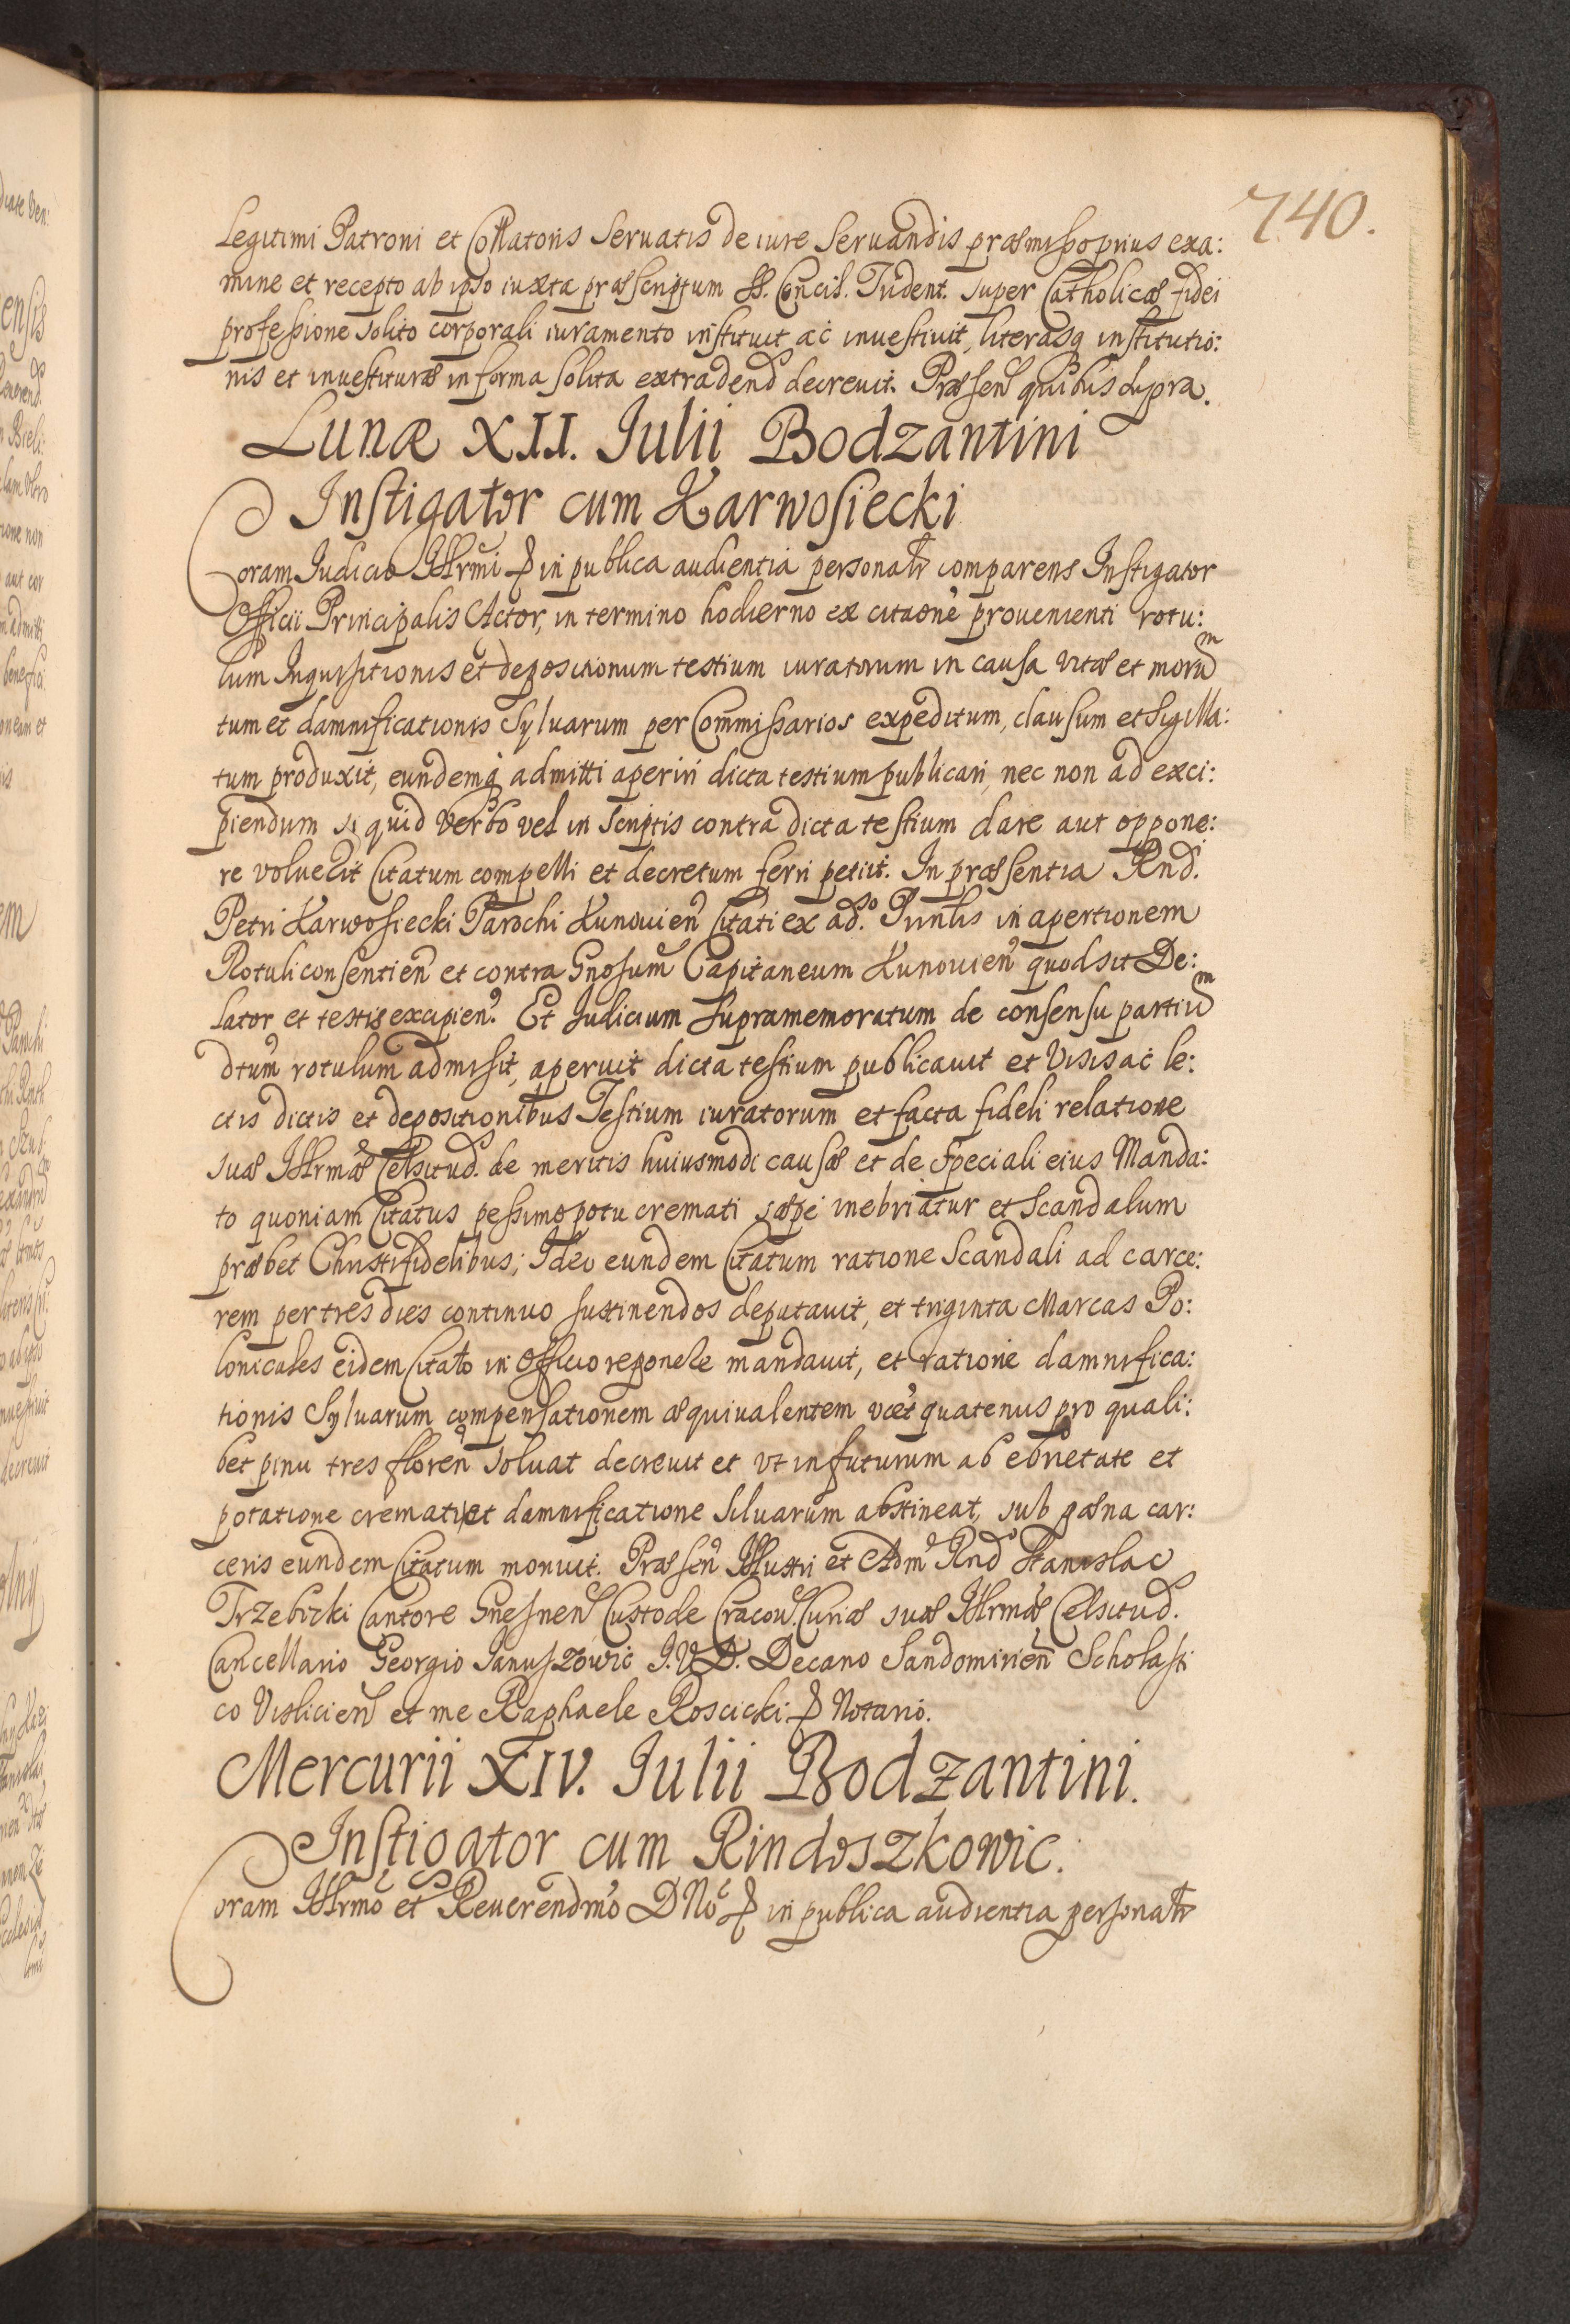 740.
Legitimi Patroni et Collatoris servatis de iure servandis præmisso prius exa:
mine et recepto ab ipso iuxta præscriptum SS. Concil. Trident. super Catholicæ fidei
professione solito corporali iuramento instituit ac investivit, literasq institutio:
nis et investituræ in forma solita extradend decrevit. Præsen quibus supra.
Lunæ XII. Iulii Bodzantini
Instigator cum Karwosiecki
Coram Iudicio Illrmi & in publica audientia personalr comparens Instigator
Officii Principalis Actor, in termino hodierno ex citaone provenienti rotu:
lum Inquisitionis et depositionum testium iuratorum in causa vitæ et morum
tum et damnificationis Sylvarum per Commissarios expeditum, clausum et sigilla:
tum produxit, eundemq admitti aperiri dicta testium publicari, nec non ad exci:
piendum si quid verbo vel in scriptis contra dicta testium dare aut oppone:
re voluerit Citatum compelli et decretum ferri petiit. In præsentia Rnd.
Petri Karwosiecki Parochi Kunovien Citati ex adso. Prinlis in apertionem
Rotuli consentien et contra Gnosum Capitaneum Kunovien quod sit De:
lator et testis excipien. Et Iudicium supramemoratum de consensu partium
dtum rotulum admisit, aperuit dicta testium publicavit et visis ac le:
ctis dictis et depositionibus Testium iuratorum et facta fideli relatione
suæ Illrmæ Celsitud. de meritis huiusmodi causæ et de speciali eius Manda:
to quoniam Citatus pessimo potu cremati sæpe inebriatur et scandalum
præbet Christifidelibus; Ideo eundem Citatum ratione scandali ad carce:
rem per tres dies continuo sustinendos deputavit, et triginta Marcas Po:
lonicales eidem Citato in Officio reponere mandavit, et ratione damnifica:
tionis Sylvarum compensationem æquivalentem vcet quatenus pro quali:
bet pinu tres floren solvat decrevit et ut in futurum ab ebrietate et
potatione cremati et damnificatione silvarum abstineat, sub pæna car:
ceris eundem Citatum monuit. Præsen Illustri et Adm Rnd Stanislao
Trzebicki Cantore Gnesnen Custode Cracov. Curiæ suæ Illrmæ Celsitud.
Cancellario Georgio Ianuszowic I.V.D. Decano Sandomirien Scholasti
co Vislicien et me Raphaele Roscicki & Notario.
Mercurii XIV. Iulii Bodzantini.
Instigator cum Rindoszkowic.
Coram Illrmo et Reverendmo DNo & in publica audientia personalr